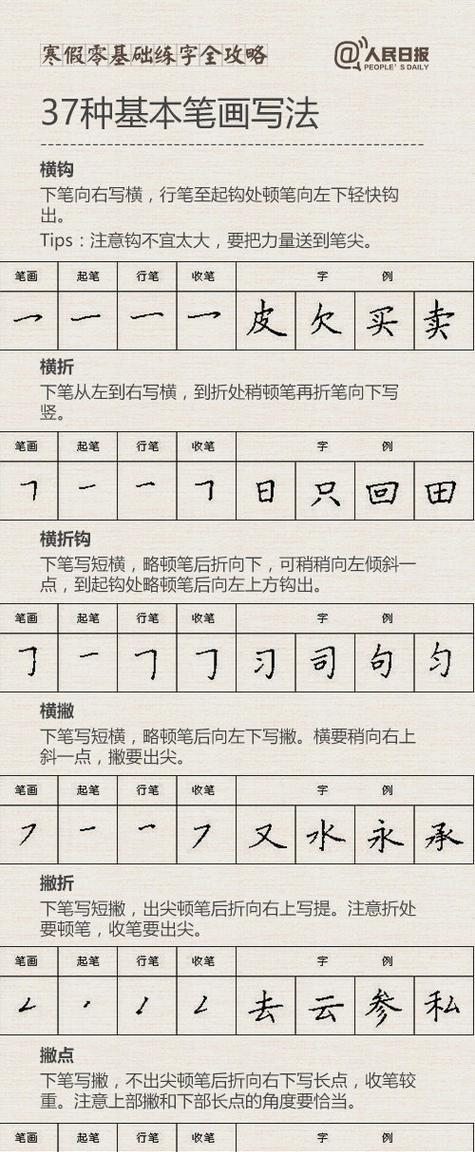 寒假零基础练字全攻略
@人民日报
PEOPLE'S DAILY
37种基本笔画写法
横钩
下笔向右写横，行笔至起钩处顿笔向左下轻快钩
出。
Tips：注意钩不宜太大，要把力量送到笔尖。
笔画 起笔 行笔 收笔 字 例
乛 一 一 乛 皮 欠 买 卖
横折
下笔从左到右写横，到折处稍顿笔再折笔向下写
竖。
笔画 起笔 行笔 收笔 字 例
𠃍 一 一 𠃍 日 只 回 田
横折钩
下笔写短横，略顿笔后折向下，可稍稍向左倾斜一
点，到起钩处略顿笔后向左上方钩出。
笔画 起笔 行笔 收笔 字 例
𠃌 一 𠃍 𠃌 习 司 句 匀
横撇
下笔写短横，略顿笔后向左下写撇。横要稍向右上
斜一点，撇要出尖。
笔画 起笔 行笔 收笔 字 例
㇇ 一 一 ㇇ 又 水 永 承
撇折
下笔写短撇，出尖顿笔后折向右上写提。注意折处
要顿笔，收笔要出尖。
笔画 起笔 行笔 收笔 字 例
𠃋 丶 丿 𠃋 去 云 参 私
撇点
下笔写撇，不出尖顿笔后折向右下写长点，收笔较
重。注意上部撇和下部长点的角度要恰当。
笔画 起笔 行笔 收笔 字 例